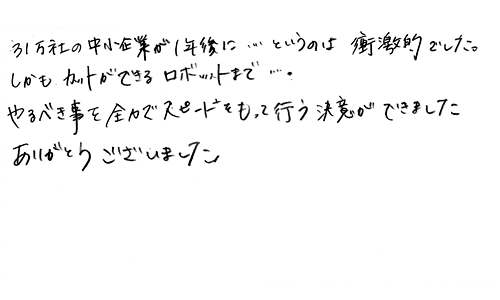 31万社の中小企業が1年後に…というのは 衝激的でした。
しかも カットができる ロボットまで…。
やるべき事を全力でスピードをもって行う決意ができました
ありがとうございました